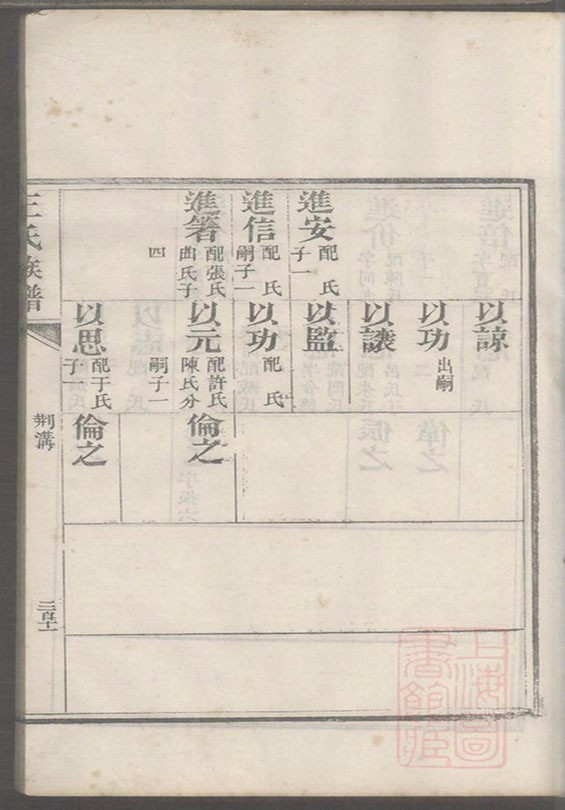 進安 配 氏 子一
進信 配 氏 嗣子一
進箸 配張氏 曲氏子四
以諒
以功 出嗣
以讓
以監
以功 配 氏
以元 配許氏 陳氏分 嗣子一
以思 配于氏 子一
倫之
倫之
王氏族譜
荆溝
上海圖書館藏